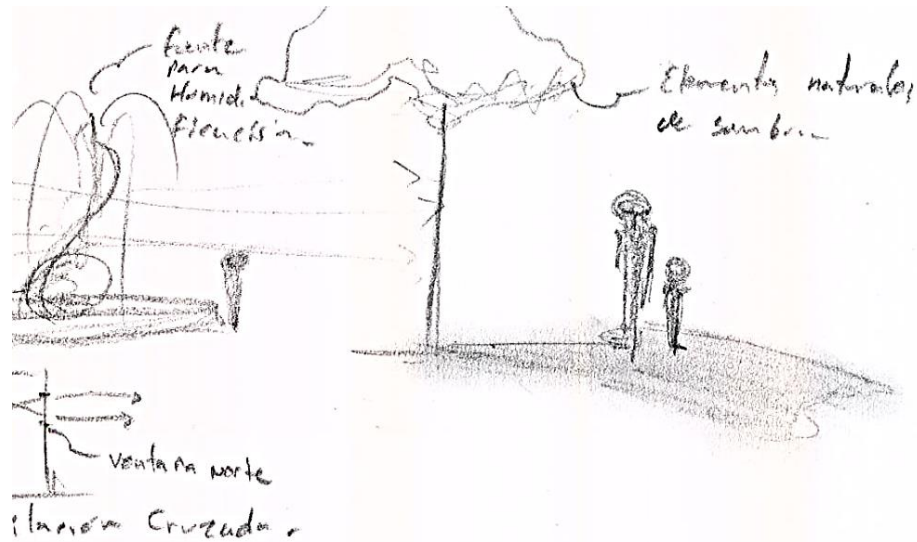 fuente
para
Elementos naturales
de sombra
ventana norte
ilación Cruzada.